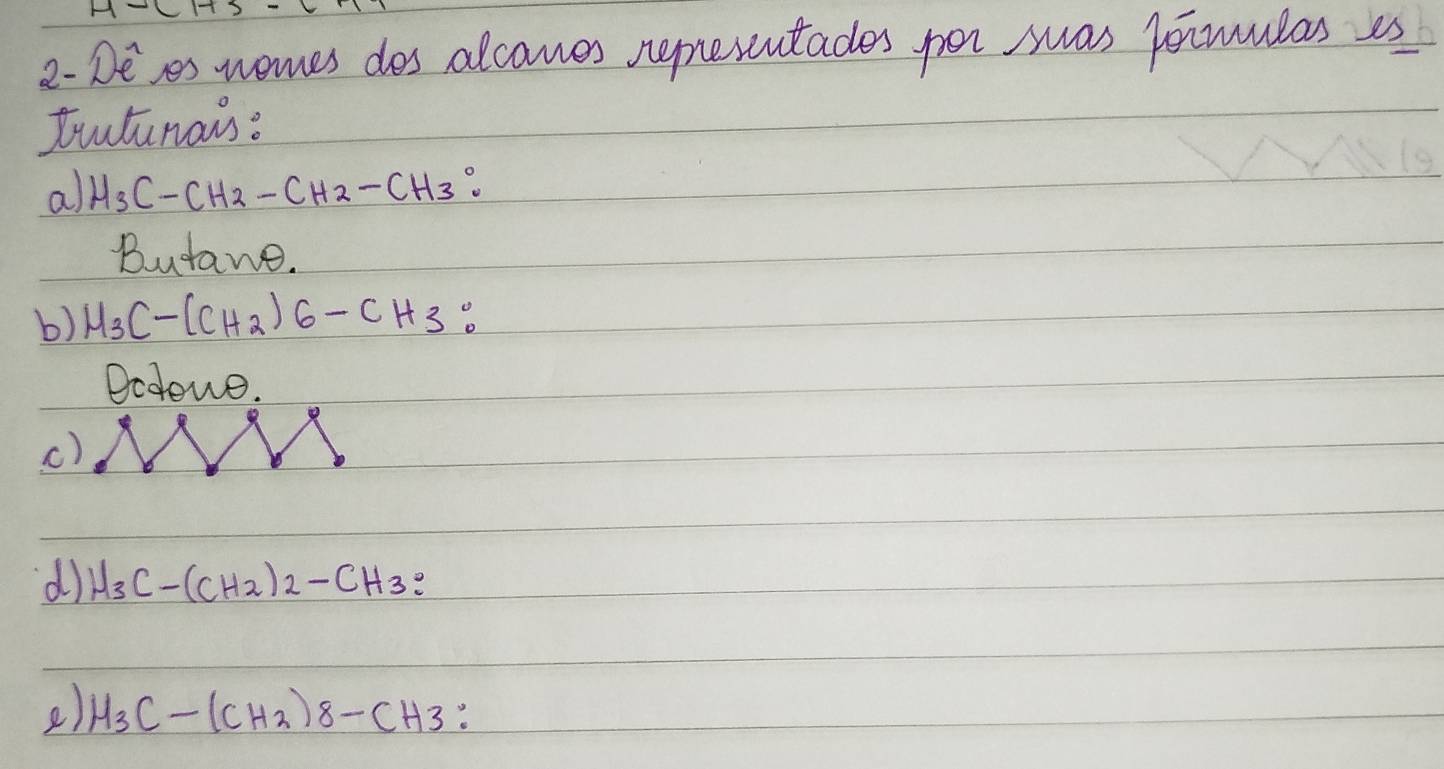 2-Dê os nomes dos alcanos representados por suas fórmulas es
truturais:
a) H3C-CH2-CH2-CH3:
Butano.
b) H3C-(CH2)6-CH3:
Octano.
c)
d) H3C-(CH2)2-CH3:
e) H3C-(CH2)8-CH3: